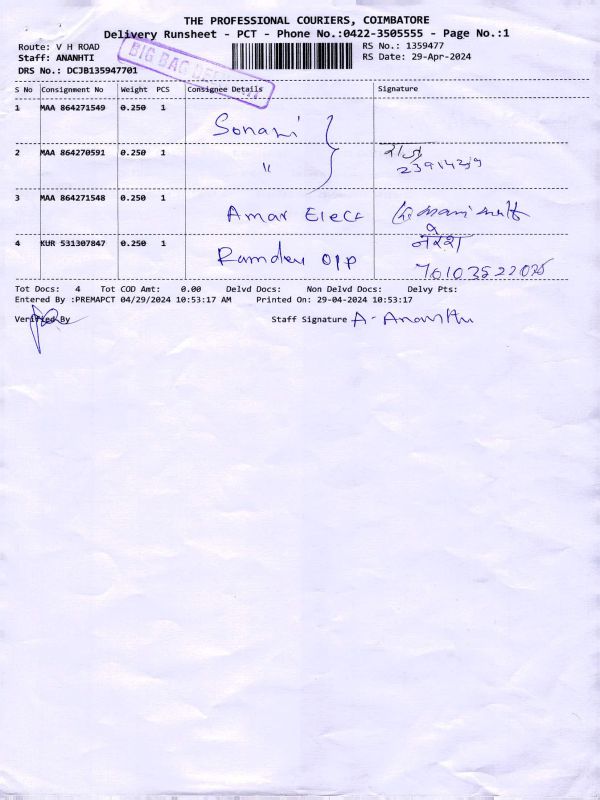 THE PROFESSIONAL COURIERS, COIMBATORE
Delivery Runsheet - PCT - Phone No.:0422-3505555 - Page No.:1
Route: V H ROAD
RS No.: 1359477
Staff: ANANHTI
RS Date: 29-Apr-2024
DRS No.: DCJB135947701
BIG BAG
S No Consignment No Weight PCS Consignee Details Signature
1 MAA 864271549 0.250 1 Sonani
2 MAA 864270591 0.250 1 "
3 MAA 864271548 0.250 1 Amar Elect
4 KUR 531307847 0.250 1 Ramdev opp
नरेश
Tot Docs: 4 Tot COD Amt: 0.00 Delvd Docs: Non Delvd Docs: Delvy Pts:
Entered By :PREMAPCT 04/29/2024 10:53:17 AM Printed On: 29-04-2024 10:53:17
Verified By
Staff Signature A-Ananthi